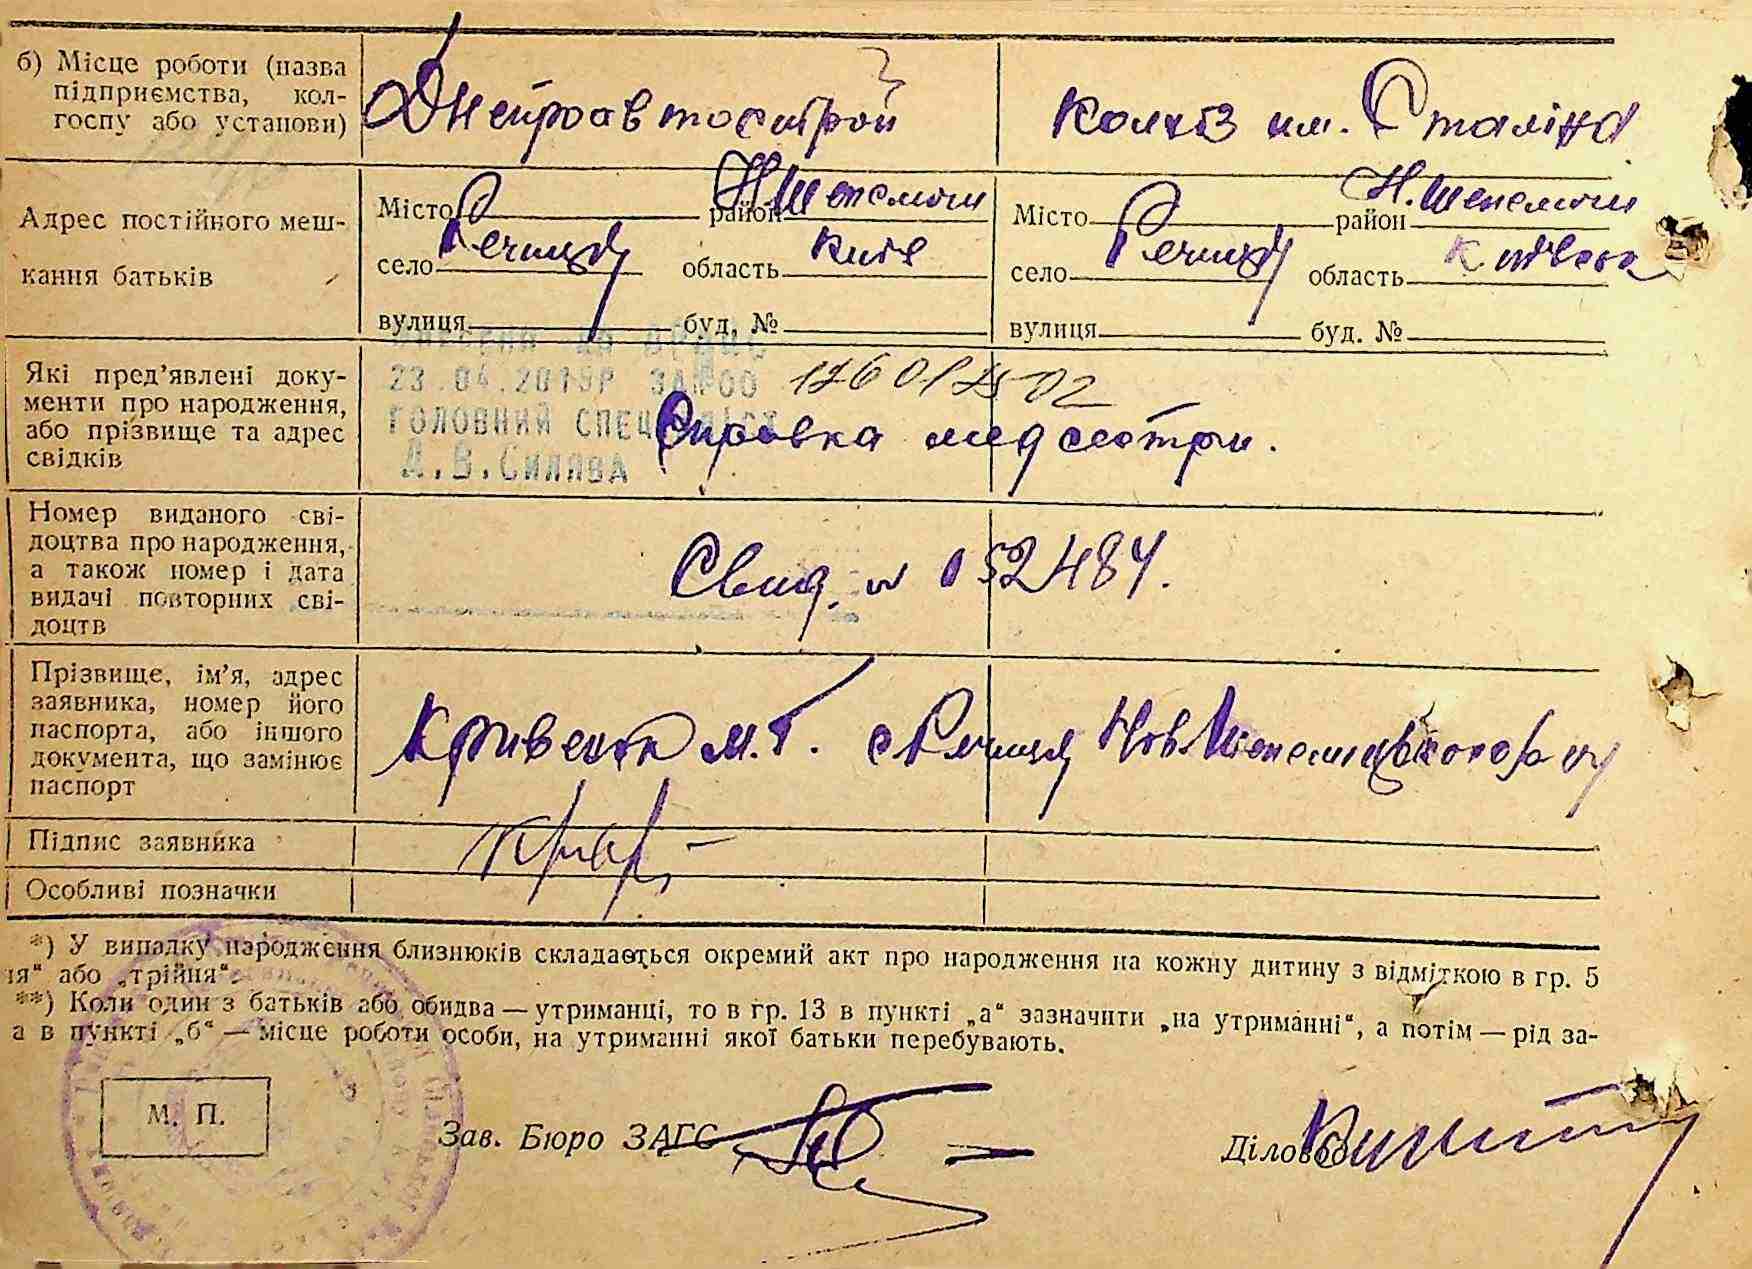 б) Місце роботи (назва
підприємства, кол-
госпу або установи)
Днепроавтострой
Колгоз им. Сталіна
Адрес постійного меш-
кання батьків
Місто район Н.Шепеличи
село Речица область Киев
вулиця буд. №
Місто район Н.Шепеличи
село Речица область Київська
вулиця буд. №
Які пред’явлені доку-
менти про народження,
або прізвище та адрес
свідків
23.04.2019Р ЗА №00 176012502
ГОЛОВНИЙ СПЕЦІАЛІСТ
Справка медсестри.
Номер виданого сві-
доцтва про народження,
а також номер і дата
видачі повторних сві-
доцтв
Свид. № 052484.
Прізвище, ім’я, адрес
заявника, номер його
паспорта, або іншого
документа, що замінює
паспорт
М.Г. с Речица Нов Шепеличского р-ну
Підпис заявника
Особливі позначки
*) У випадку народження близнюків складається окремий акт про народження на кожну дитину з відміткою в гр. 5
ія“ або „трійня“.
**) Коли один з батьків або обидва — утриманці, то в гр. 13 в пункті „а“ зазначити „на утриманні“, а потім — рід за-
а в пункті „б“ — місце роботи особи, на утриманні якої батьки перебувають.
М. П.
Зав. Бюро ЗАГС
Діловод